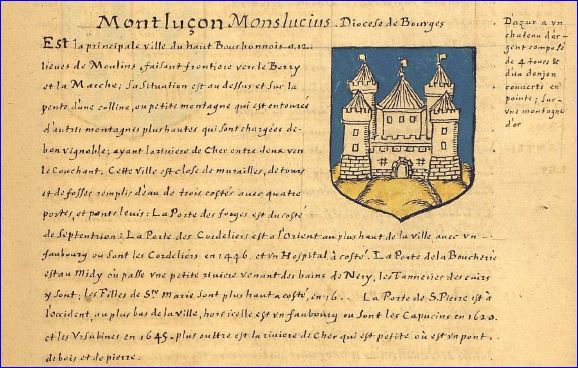 Montluçon Monslucius. Diocese de Bourges
Est la principale ville du haut Bourbonnois a 12.
lieues de Moulins, faisant frontiere vers le Berry
et la Marche; sa situation est au dessus et sur la
pente d'une colline, ou petite montagne qui est entourée
d'autres montagnes plus hautes qui sont chargées de
bon vignoble; ayant la riviere de Cher entre deux vers
le Couchant. Cette ville est close de murailles, de tours
et de fosses remplis d'eau de trois costés avec quatre
portes, et ponts levis: La Porte des forges est du costé
de Septentrion: La Porte des Cordeliers est a l'Orient au plus haut de la ville avec vn
faubourg ou sont les Cordeliers en 1446. et vn Hospital à costé. La Porte de la Boucherie
est au Midy où passe vne petite riviere venant des bains de Nery, les Tanneries des cuirs
y sont; les Filles de Ste. Marie sont plus haut a costé, en 16.. La Porte de S. Pierre est à
l'Occident, au plus bas de la ville, hors icelle est vn faubourg ou sont les Capucins en 1620.
et les Vrsulines en 1645. plus oultre est la riviere de Cher qui est petite où est vn pont
de bois et de pierre.
Dazur a vn
chateau d'ar-
gent composé
de 4 tours &
d'un donjon
couverts en
pointe; sur
vne montagne
d'or